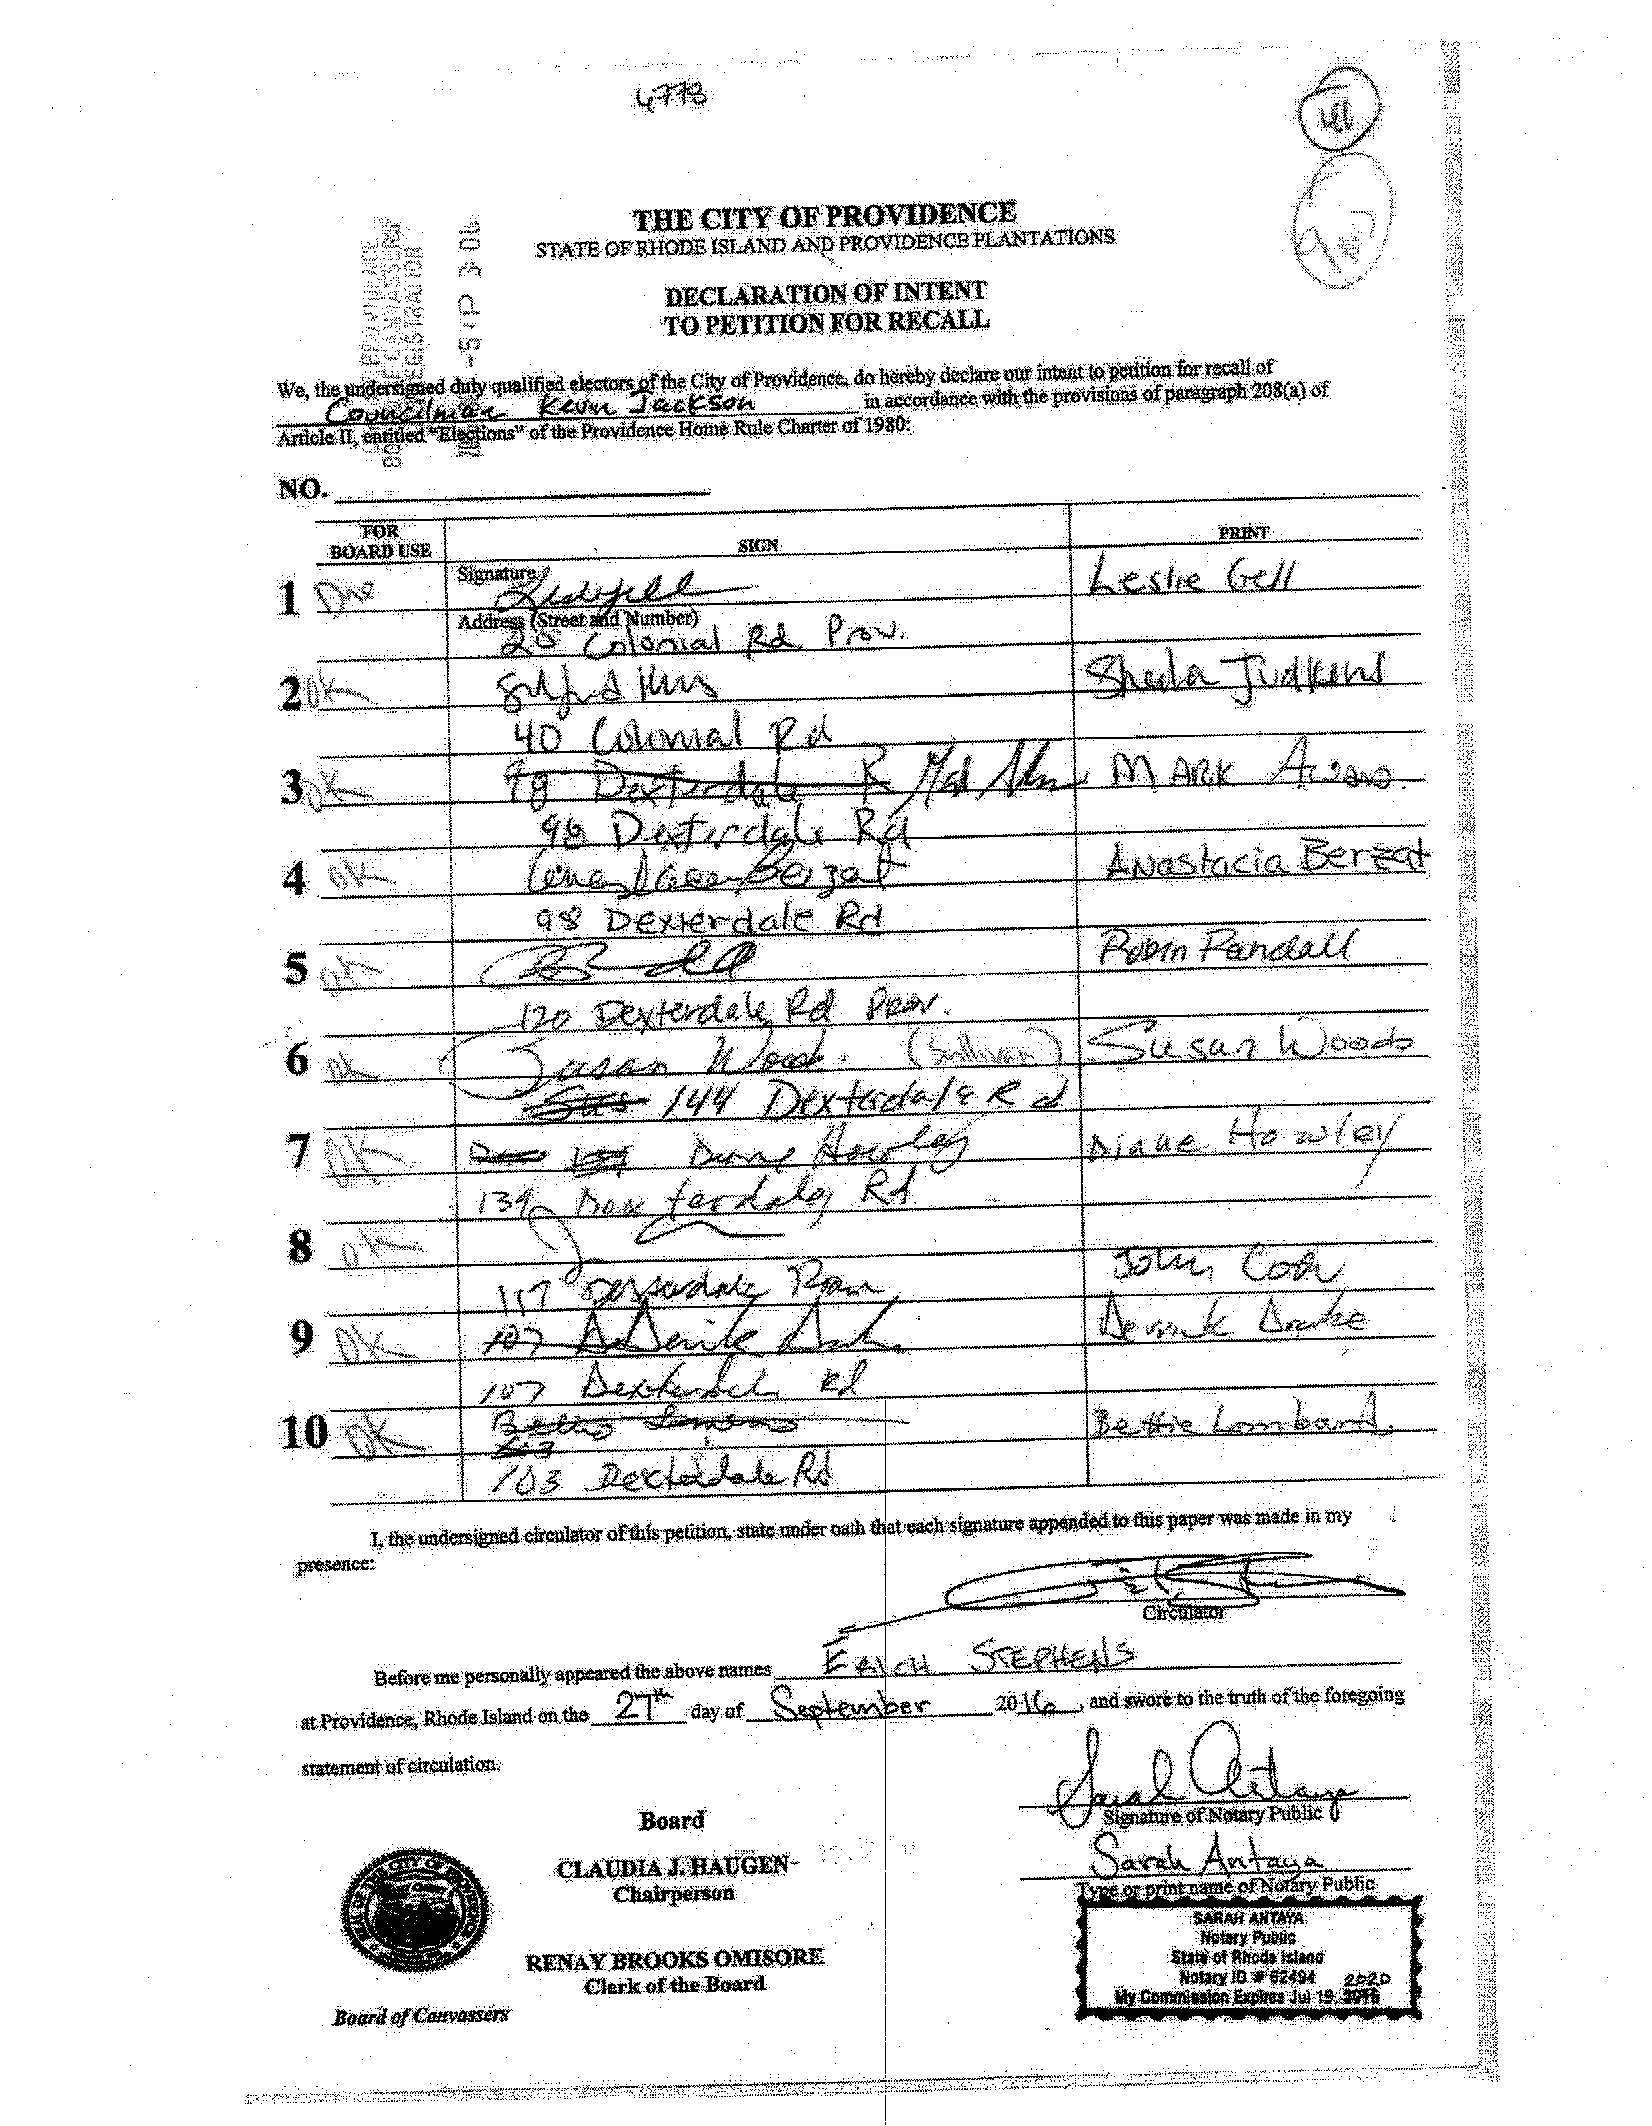 4773
THE CITY OF PROVIDENCE
STATE OF RHODE ISLAND AND PROVIDENCE PLANTATIONS
DECLARATION OF INTENT
TO PETITION FOR RECALL
We, the undersigned duly qualified electors of the City of Providence, do hereby declare our intent to petition for recall of
Councilman Kevin Jackson in accordance with the provisions of paragraph 208(a) of
Article II, entitled "Elections" of the Providence Home Rule Charter of 1980:
NO.
FOR BOARD USE SIGN PRINT
1 Signature Leslie Gell
Address (Street and Number)
20 Colonial Rd Prov.
2 OK Sheila Judkins
40 Colonial Rd
3 OK 98 Dexterdale R MARK
98 Dexterdale Rd
4 OK Berzat Anastacia Berzat
98 Dexterdale Rd
5 OK Robin Randall
120 Dexterdale Rd Prov.
6 OK Susan Woods (Sullivan) Susan Woods
144 Dexterdale Rd
7 OK Diane Howley Diane Howley
139 Dexterdale Rd
8 OK John
117
9 OK 107 Derrick Drake Derrick Drake
107 Dexterdale Rd
10 OK Bettie Lombard.
103 Dexterdale Rd
I, the undersigned circulator of this petition, state under oath that each signature appended to this paper was made in my
presence:
Circulator
Before me personally appeared the above names ERICH STEPHENS
at Providence, Rhode Island on the 27th day of September 2016, and swore to the truth of the foregoing
statement of circulation.
Sarah Antaya
Signature of Notary Public
Board
CLAUDIA J. HAUGEN
Chairperson
Sarah Antaya
Type or print name of Notary Public
RENAY BROOKS OMISORE
Clerk of the Board
Board of Canvassers
SARAH ANTAYA
Notary Public
State of Rhode Island
Notary ID # 62494 2020
My Commission Expires Jul 19,